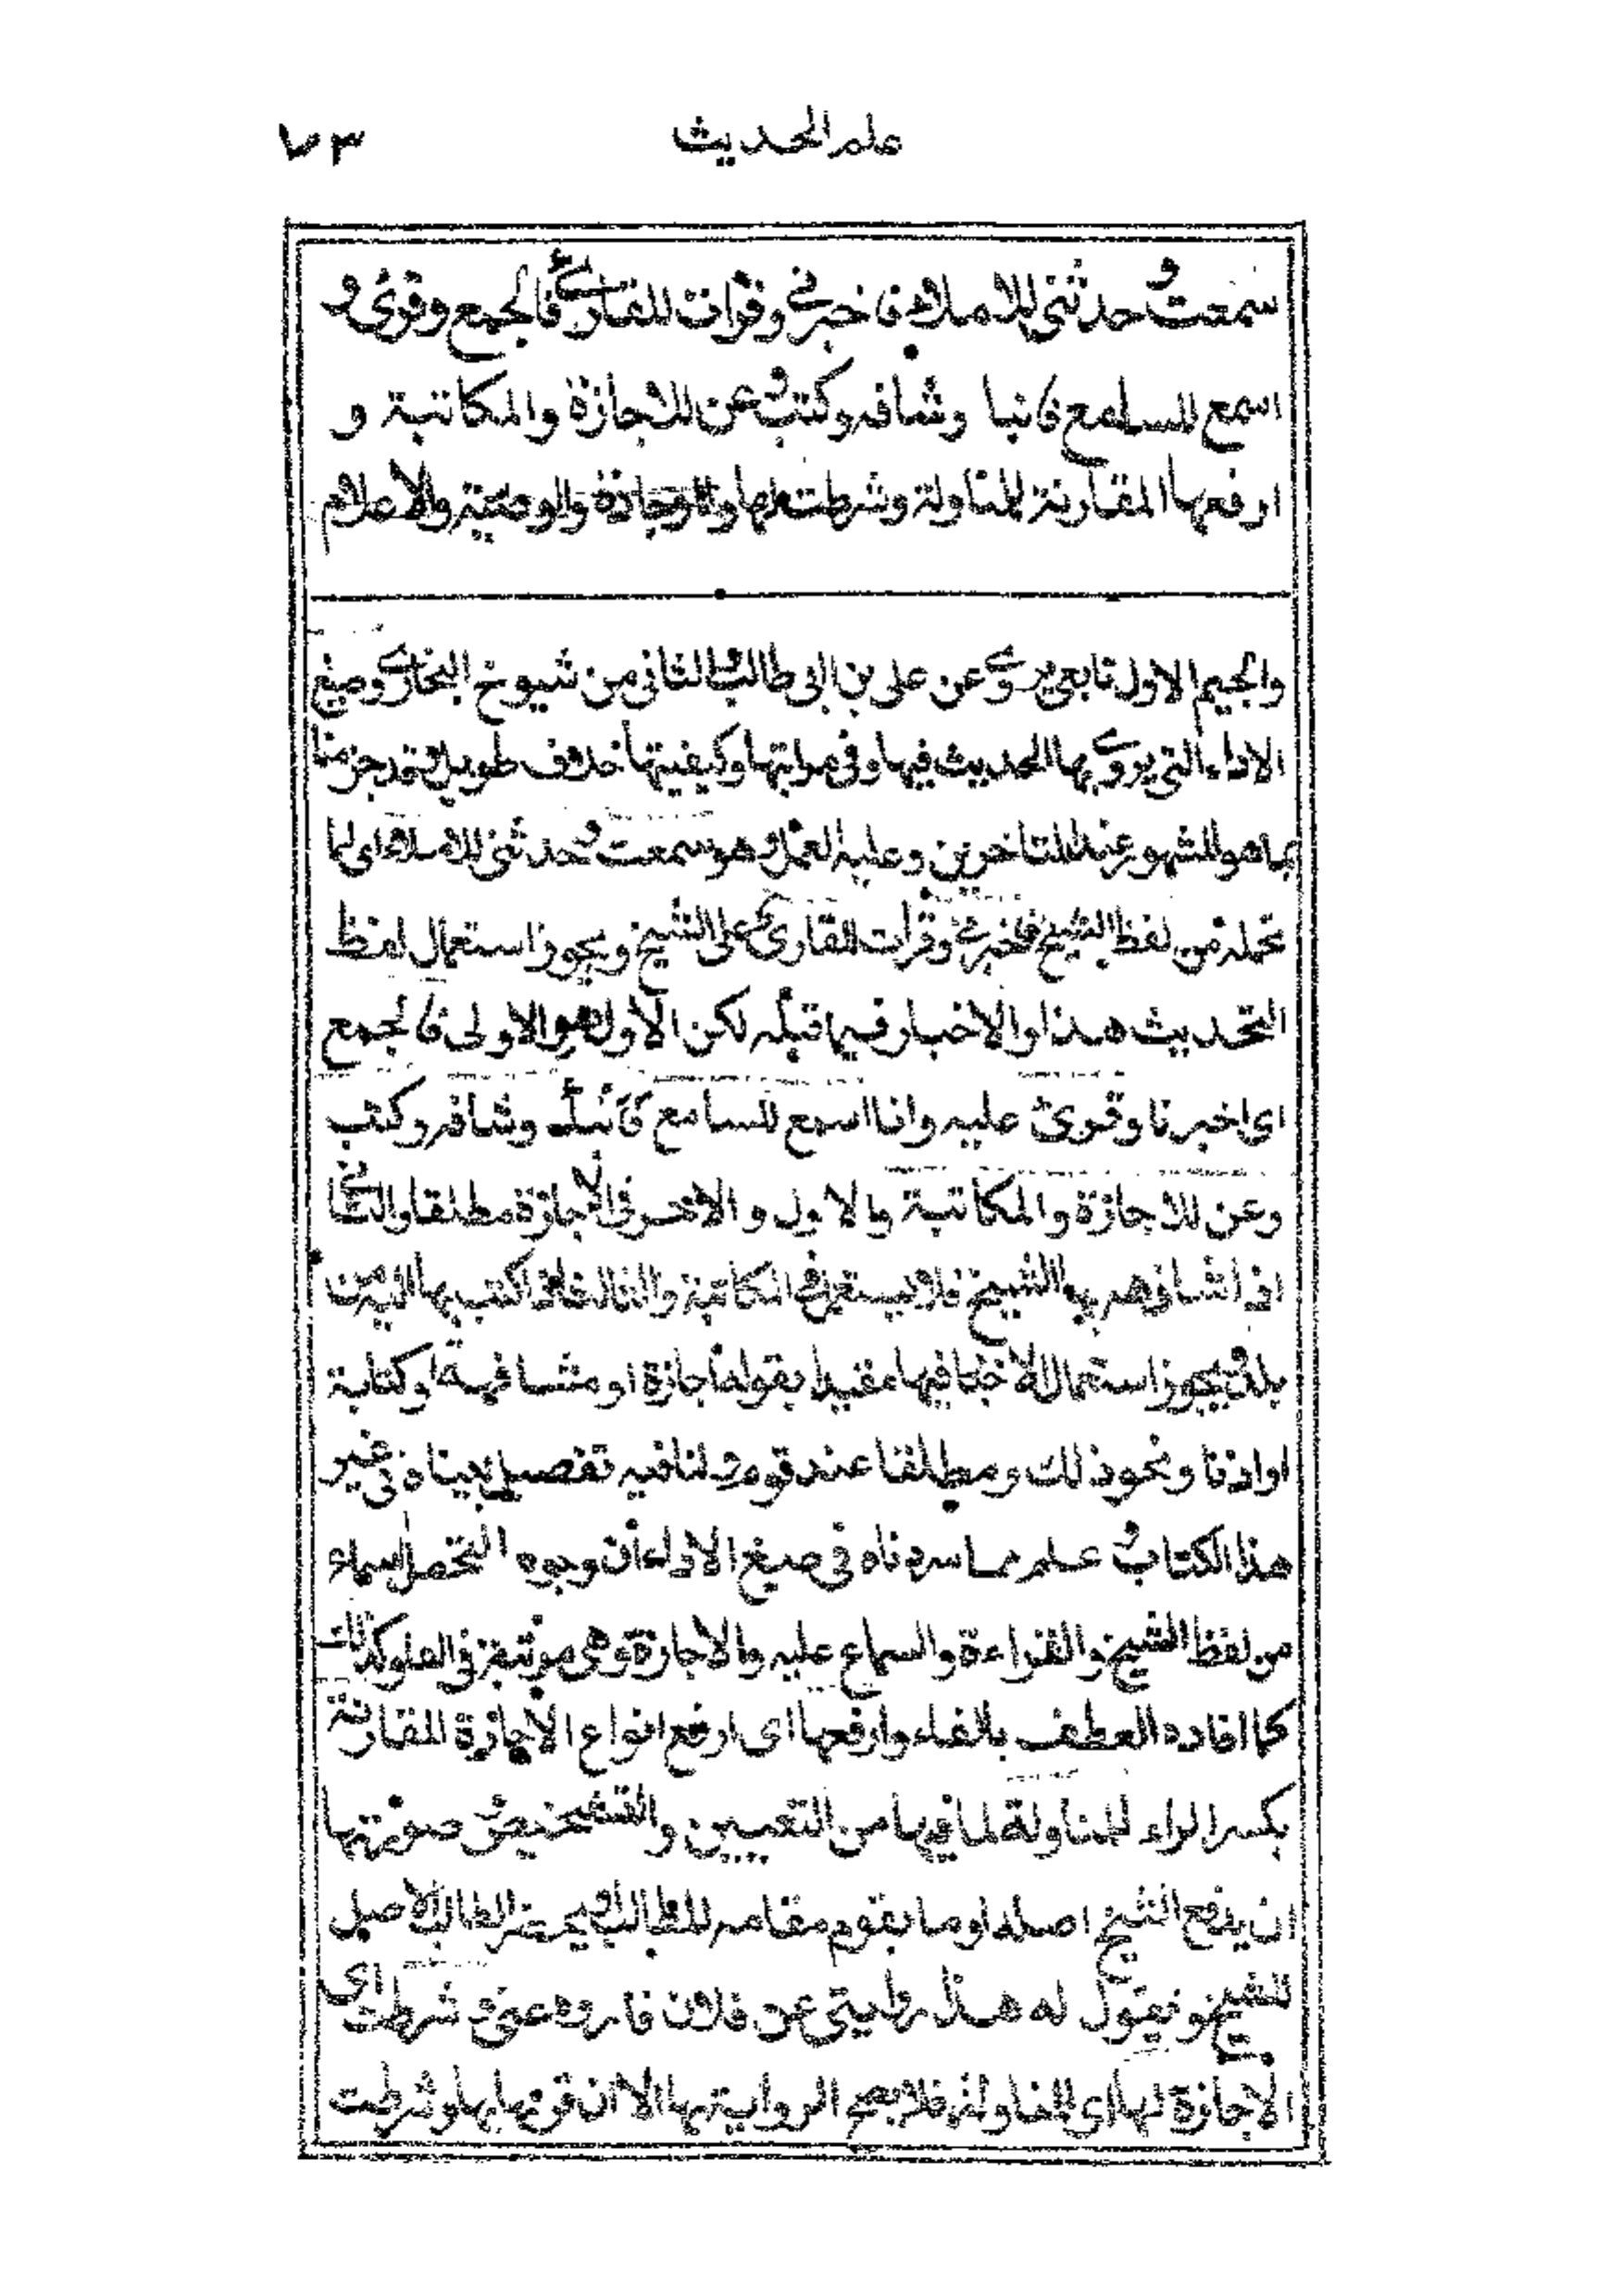 علم الحديث
٧٣
سمعت وحدثنى للاملاء فاخبرنى وقرات للقارى فالجمع وقرئ و
اسمع للسامع فانبا وشافه وكتب وعن للاجازة والمكاتبة و
ارفعها المقارنة للمناولة وشرطت لها وللوجادة والوصية والاعلام
والجيم الاول تابعى يروى عن على بن ابى طالب والثانى من شيوخ البخارى وصيغ
الاداء التى يروى بها الحديث فيها وفى مراتبها وكيفيتها خلاف طويل وقد جزمنا
بما هو المشهور عند المتاخرين وعليه العمل وهو سمعت وحدثنى للاملاء اى لما
تحمله من لفظ الشيخ فاخبرنى وقرأت للقارى على الشيخ ويجوز استعمال لفظ
التحديث هنا والاخبار فيما قبله لكن الاول هو الاولى فالجمع
اى اخبرنا وقرئ عليه وانا اسمع للسامع فانبأ وشافه وكتب
وعن للاجازة والمكاتبة فالاول والاخر فى الاجازة مطلقا والثانى
اذا شافهه بها الشيخ فلا يستعمل فى المكاتبة والثالث اذا كتب بها اليه من
بلد ويجوز استعمال الاخبار فيها مقيدا بقوله اجازة او مشافهة او كتابة
او اذنا ونحو ذلك ومطلقا عند قوم ولنا فيه تفصيل بيناه فى غير
هذا الكتاب وعلم مما سردناه فى صيغ الاداء ان وجوه التحمل السماع
من لفظ الشيخ والقراءة والسماع عليه والاجازة وهى مرتبة فى العلو كذلك
كما افاده العطف بالفاء وارفعها اى ارفع انواع الاجازة المقارنة
بكسر الراء للمناولة لما فيها من التعيين والتشخيص وصورتها
ان يدفع الشيخ اصله او ما يقوم مقامه للطالب او يحضر الطالب الاصل
للشيخ ويقول له هذا روايتى عن فلان فاروه عنى وشرطت اى
الاجازة لها اى للمناولة فلا يصح الرواية بها الا ان قرنها بها وشرطت